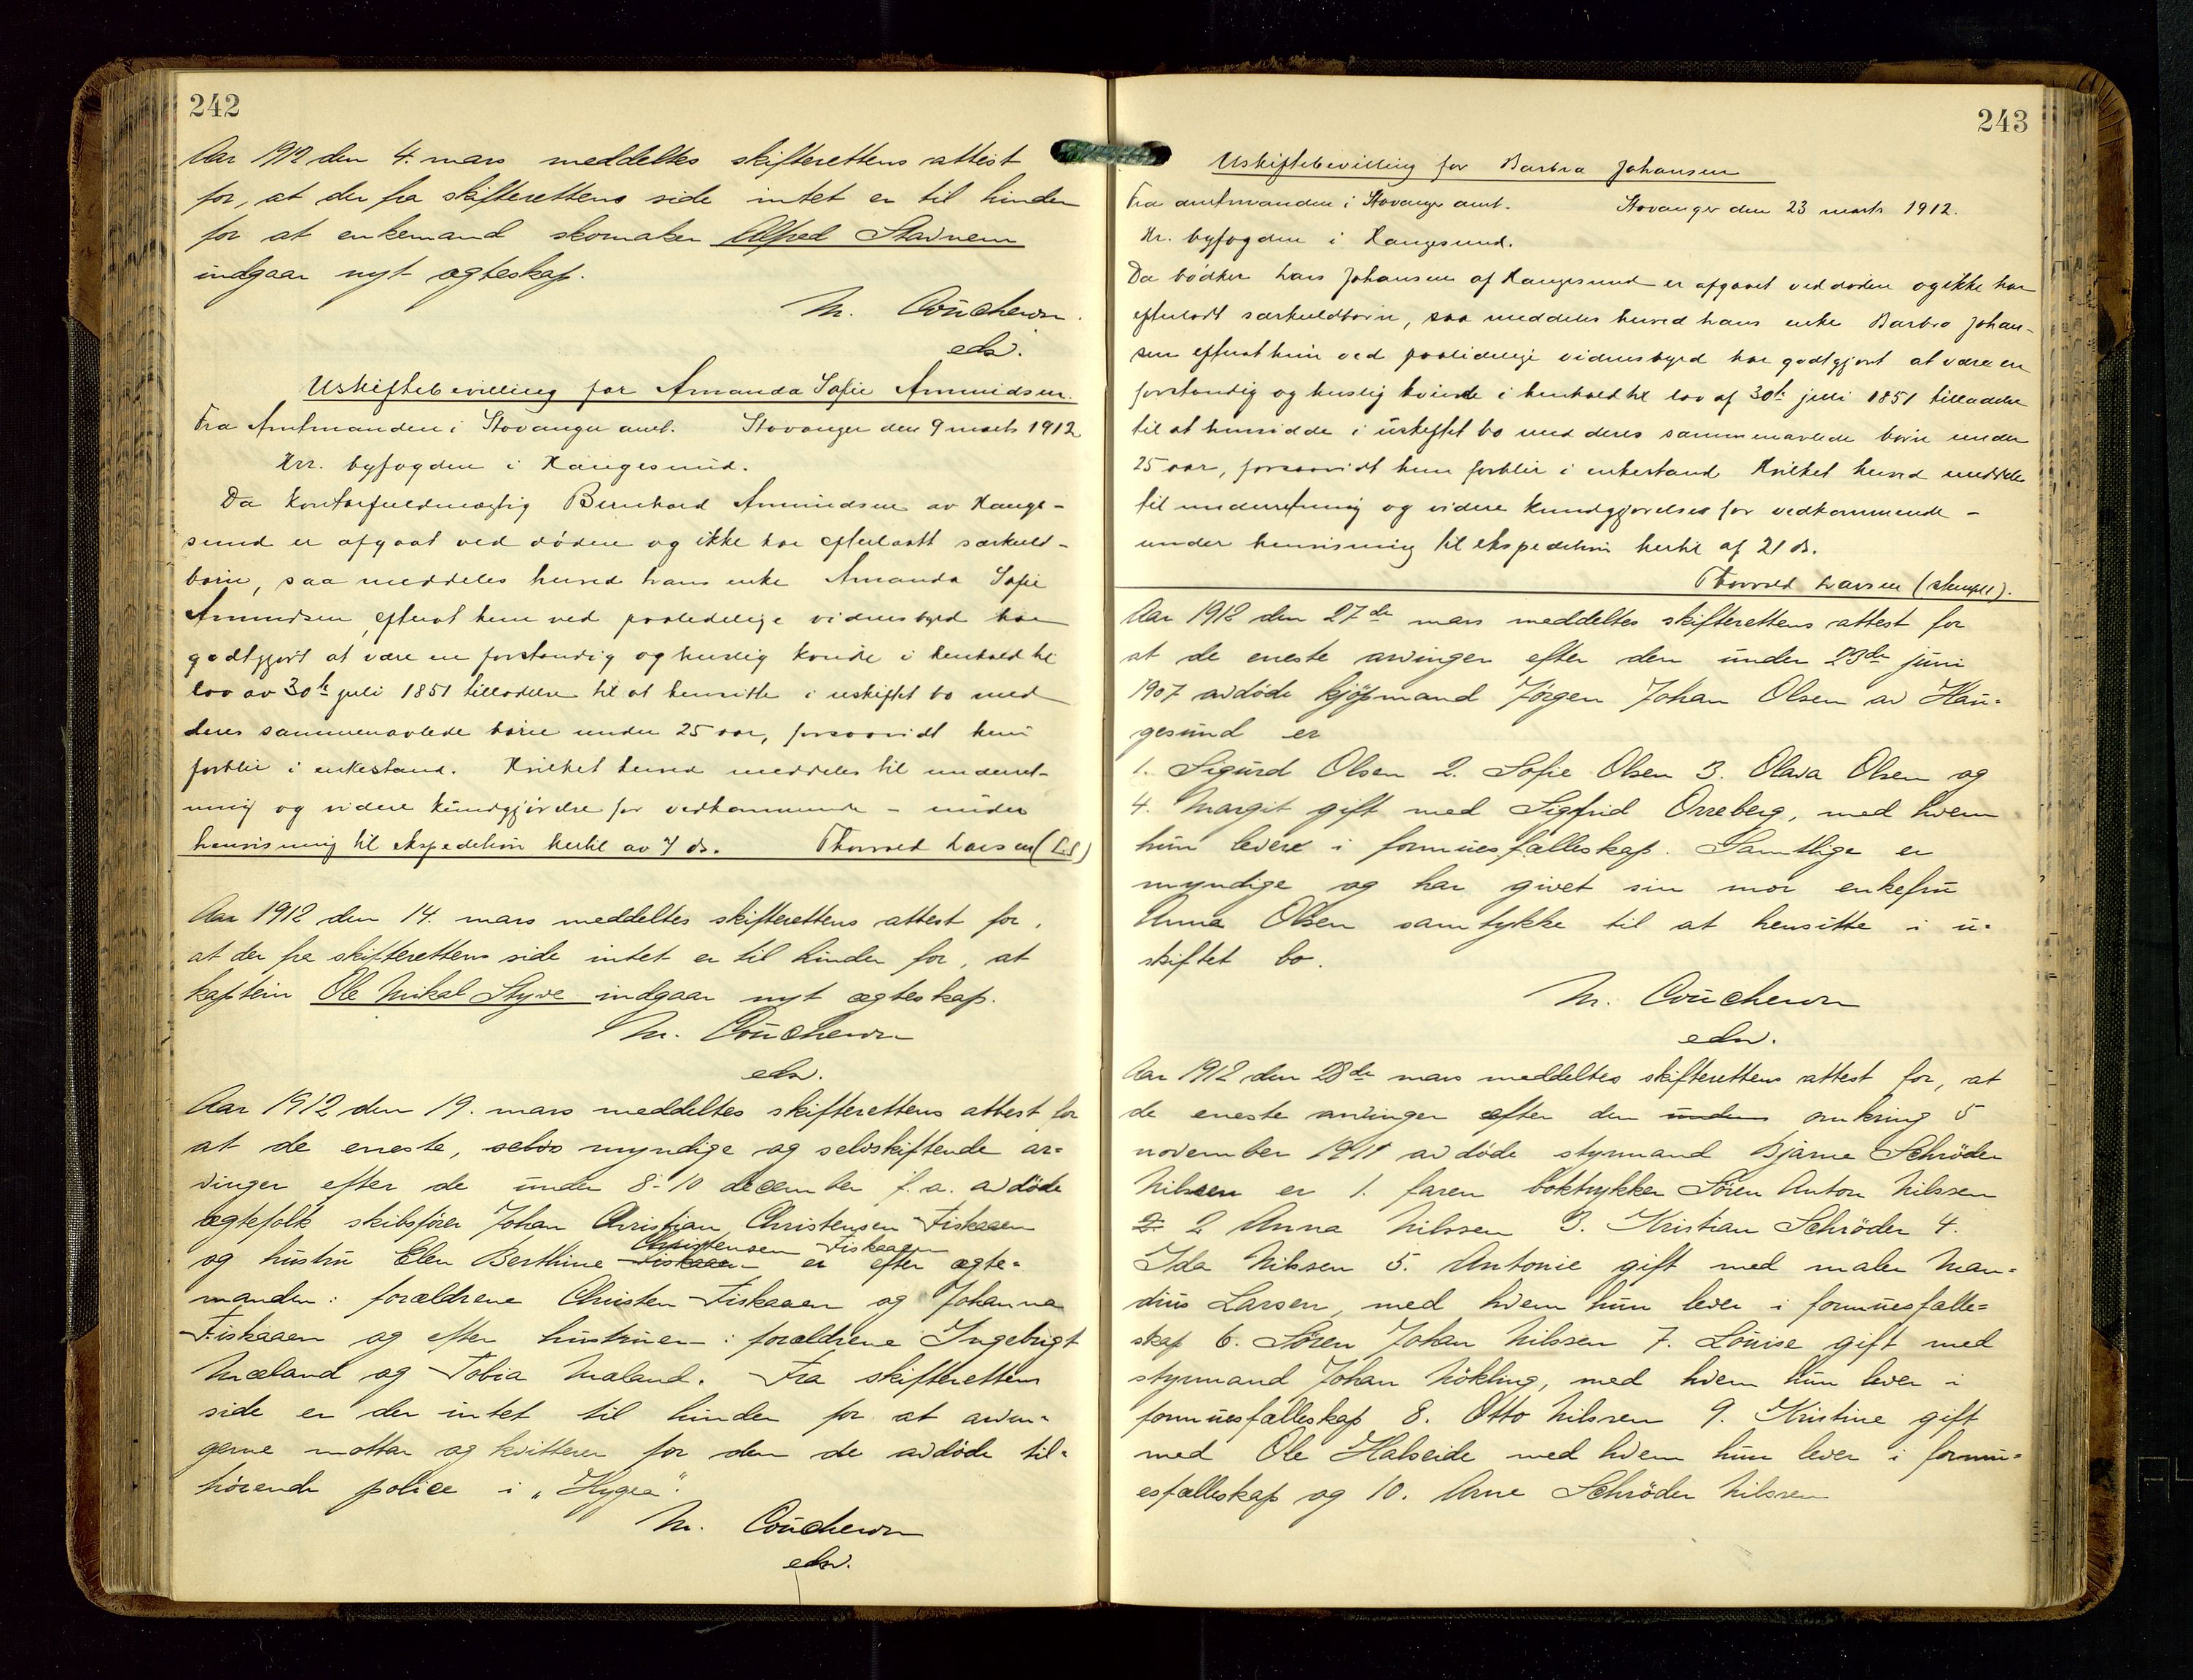 242
Aar 1912 den 4. mars meddeltes skifterettens attest
for, at der fra skifterettens side intet er til hinder
for at enkemand skomaker Alfred Stavnem
indgaar nyt ægteskap.
M. Coucheron
edv.
Uskiftebevilling for Amanda Sofie Amundsen.
Fra Amtmanden i Stavanger amt. Stavanger den 9 marts 1912
Hrr. byfogden i Haugesund.
Da kontorfuldmægtig Bernhard Amundsen av Hauge-
sund er afgaat ved døden og ikke har efterlatt særkuld-
børn, saa meddeles herved hans enke Amanda Sofie
Amundsen, efterat hun ved paalidelige vidnesbyrd har
godtgjort at være en forstandig og huslig kvinde i henhold til
lov av 30te juli 1851 tilladelse til at hensitte i uskiftet bo med
deres sammenavlede børn under 25 aar, forsaavidt hun
forblir i enkestand. Hvilket herved meddeles til underret-
ning og videre kundgjørelse for vedkommende - under
henvisning til ekspedition hertil av 7 ds. Thorvald Larsen (L.S)
Aar 1912 den 14. mars meddeltes skifterettens attest for,
at der fra skifterettens side intet er til hinder for, at
kaptein Ole Mikal Styve indgaar nyt ægteskap.
M. Coucheron
edv.
Aar 1912 den 19. mars meddeltes skifterettens attest for
at de eneste, selvs myndige og selvskiftende ar=
vinger efter de under 8-10 december f.a. avdöde
ægtefolk skibsfører Johan Christian Christensen Fiskaaen
Christensen Fiskaaen
og hustru Elen Berthine Fiskaaen er efter ægte=
manden: forældrene Christen Fiskaaen og Johanna
Fiskaaen og efter hustruen: forældrene Ingebrigt
Mæland og Tobia Mæland. Fra skifterettens
side er der intet til hinder for at arvin=
gerne mottar og kvitterer for den de avdöde til=
hörende police i "Hygea".
M. Coucheron
edv.
243
Uskiftebevilling for Barbra Johansen
Fra amtmanden i Stavanger amt. Stavanger den 23 marts 1912.
Hr. byfogden i Haugesund.
Da bødker Lars Johansen af Haugesund er afgaaet ved døden og ikke har
efterladt særkuldbørn, saa meddeles herved hans enke Barbro Johan-
sen efterat hun ved paalidelige vidnesbyrd har godtgjort at være en
forstandig og huslig kvinde i henhold til lov af 30te juli 1851 tilladelse
til at hensidde i uskiftet bo med deres sammenavlede børn under
25 aar, forsaavidt hun forblir i enkestand Hvilket herved meddeles
til underretning og videre kundgjørelse for vedkommende -
under henvisning til ekspedition hertil af 21 ds.
Thorvald Larsen (stempel).
Aar 1912 den 27de mars meddeltes skifterettens attest for
at de eneste arvinger efter den under 23de juni
1907 avdöde kjöpmand Jörgen Johan Olsen av Hau=
gesund er
1. Sigurd Olsen 2. Sofie Olsen 3. Olava Olsen og
4. Margit gift med Sigfrid Orreberg, med hvem
hun lever i formuesfælleskap. Samtlige er
myndige og har givet sin mor enkefru
Anna Olsen samtykke til at hensitte i u=
skiftet bo.
M. Coucheron
edv.
Aar 1912 den 28de mars meddeltes skifterettens attest for, at
de eneste arvinger efter den under omkring 5
november 1911 avdöde styrmand Bjarne Schröder
Nilssen er 1. faren boktrykker Sören Anton Nilssen
2 2 Anna Nilssen 3. Kristian Schröder 4.
Ida Nilssen 5. Antonie gift med maler Man=
dius Larsen, med hvem hun lever i formuesfælle=
skap 6. Sören Johan Nilssen 7. Louise gift med
styrmand Johan Nökling, med hvem hun lever i
formuesfælleskap 8. Otto Nilssen 9. Kristine gift
med Ole Halseide med hvem hun lever i formu=
esfælleskap og 10. Arne Schröder Nilssen